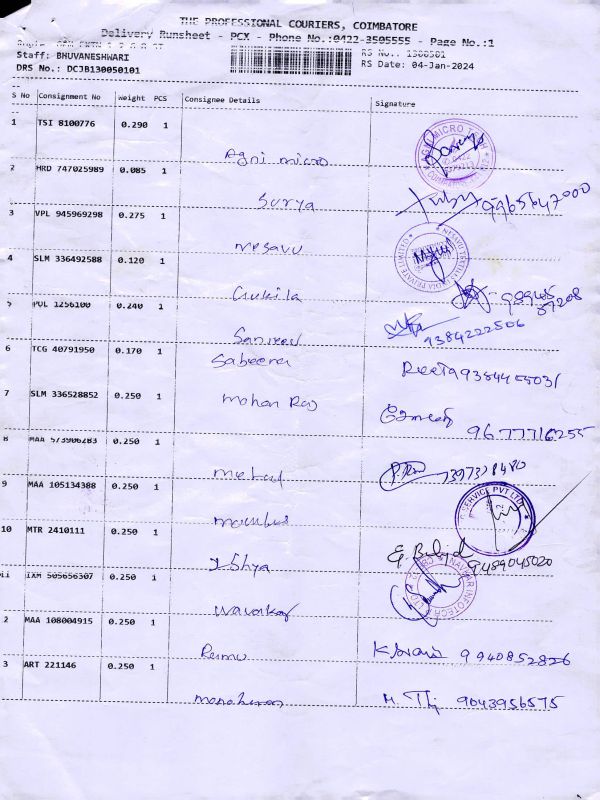 THE PROFESSIONAL COURIERS, COIMBATORE
Delivery Runsheet - PCX - Phone No.:0422-3505555 - Page No.:1
RS No.: 1300501
Staff: BHUVANESHWARI
RS Date: 04-Jan-2024
DRS No.: DCJB130050101
S No Consignment No Weight PCS Consignee Details Signature
1 TSI 8100776 0.290 1
Agni micro
2 HRD 747025989 0.085 1
Surya 9965647000
3 VPL 945969298 0.275 1
Nesavu
4 SLM 336492588 0.120 1
5 POL 1256100 0.240 1
9384222506
6 TCG 40791950 0.170 1
Sabeena
7 SLM 336528852 0.250 1
Mohan Raj
9677716255
8 MAA 573906283 0.250 1
9 MAA 105134388 0.250 1
SERVICE PVT LTD
10 MTR 2410111 0.250 1
9489045020
11 IXM 505656307 0.250 1
NAVKAR INFOTECH
2 MAA 108004915 0.250 1
Remu 9940852826
3 ART 221146 0.250 1
Manoharan M. 9043956575